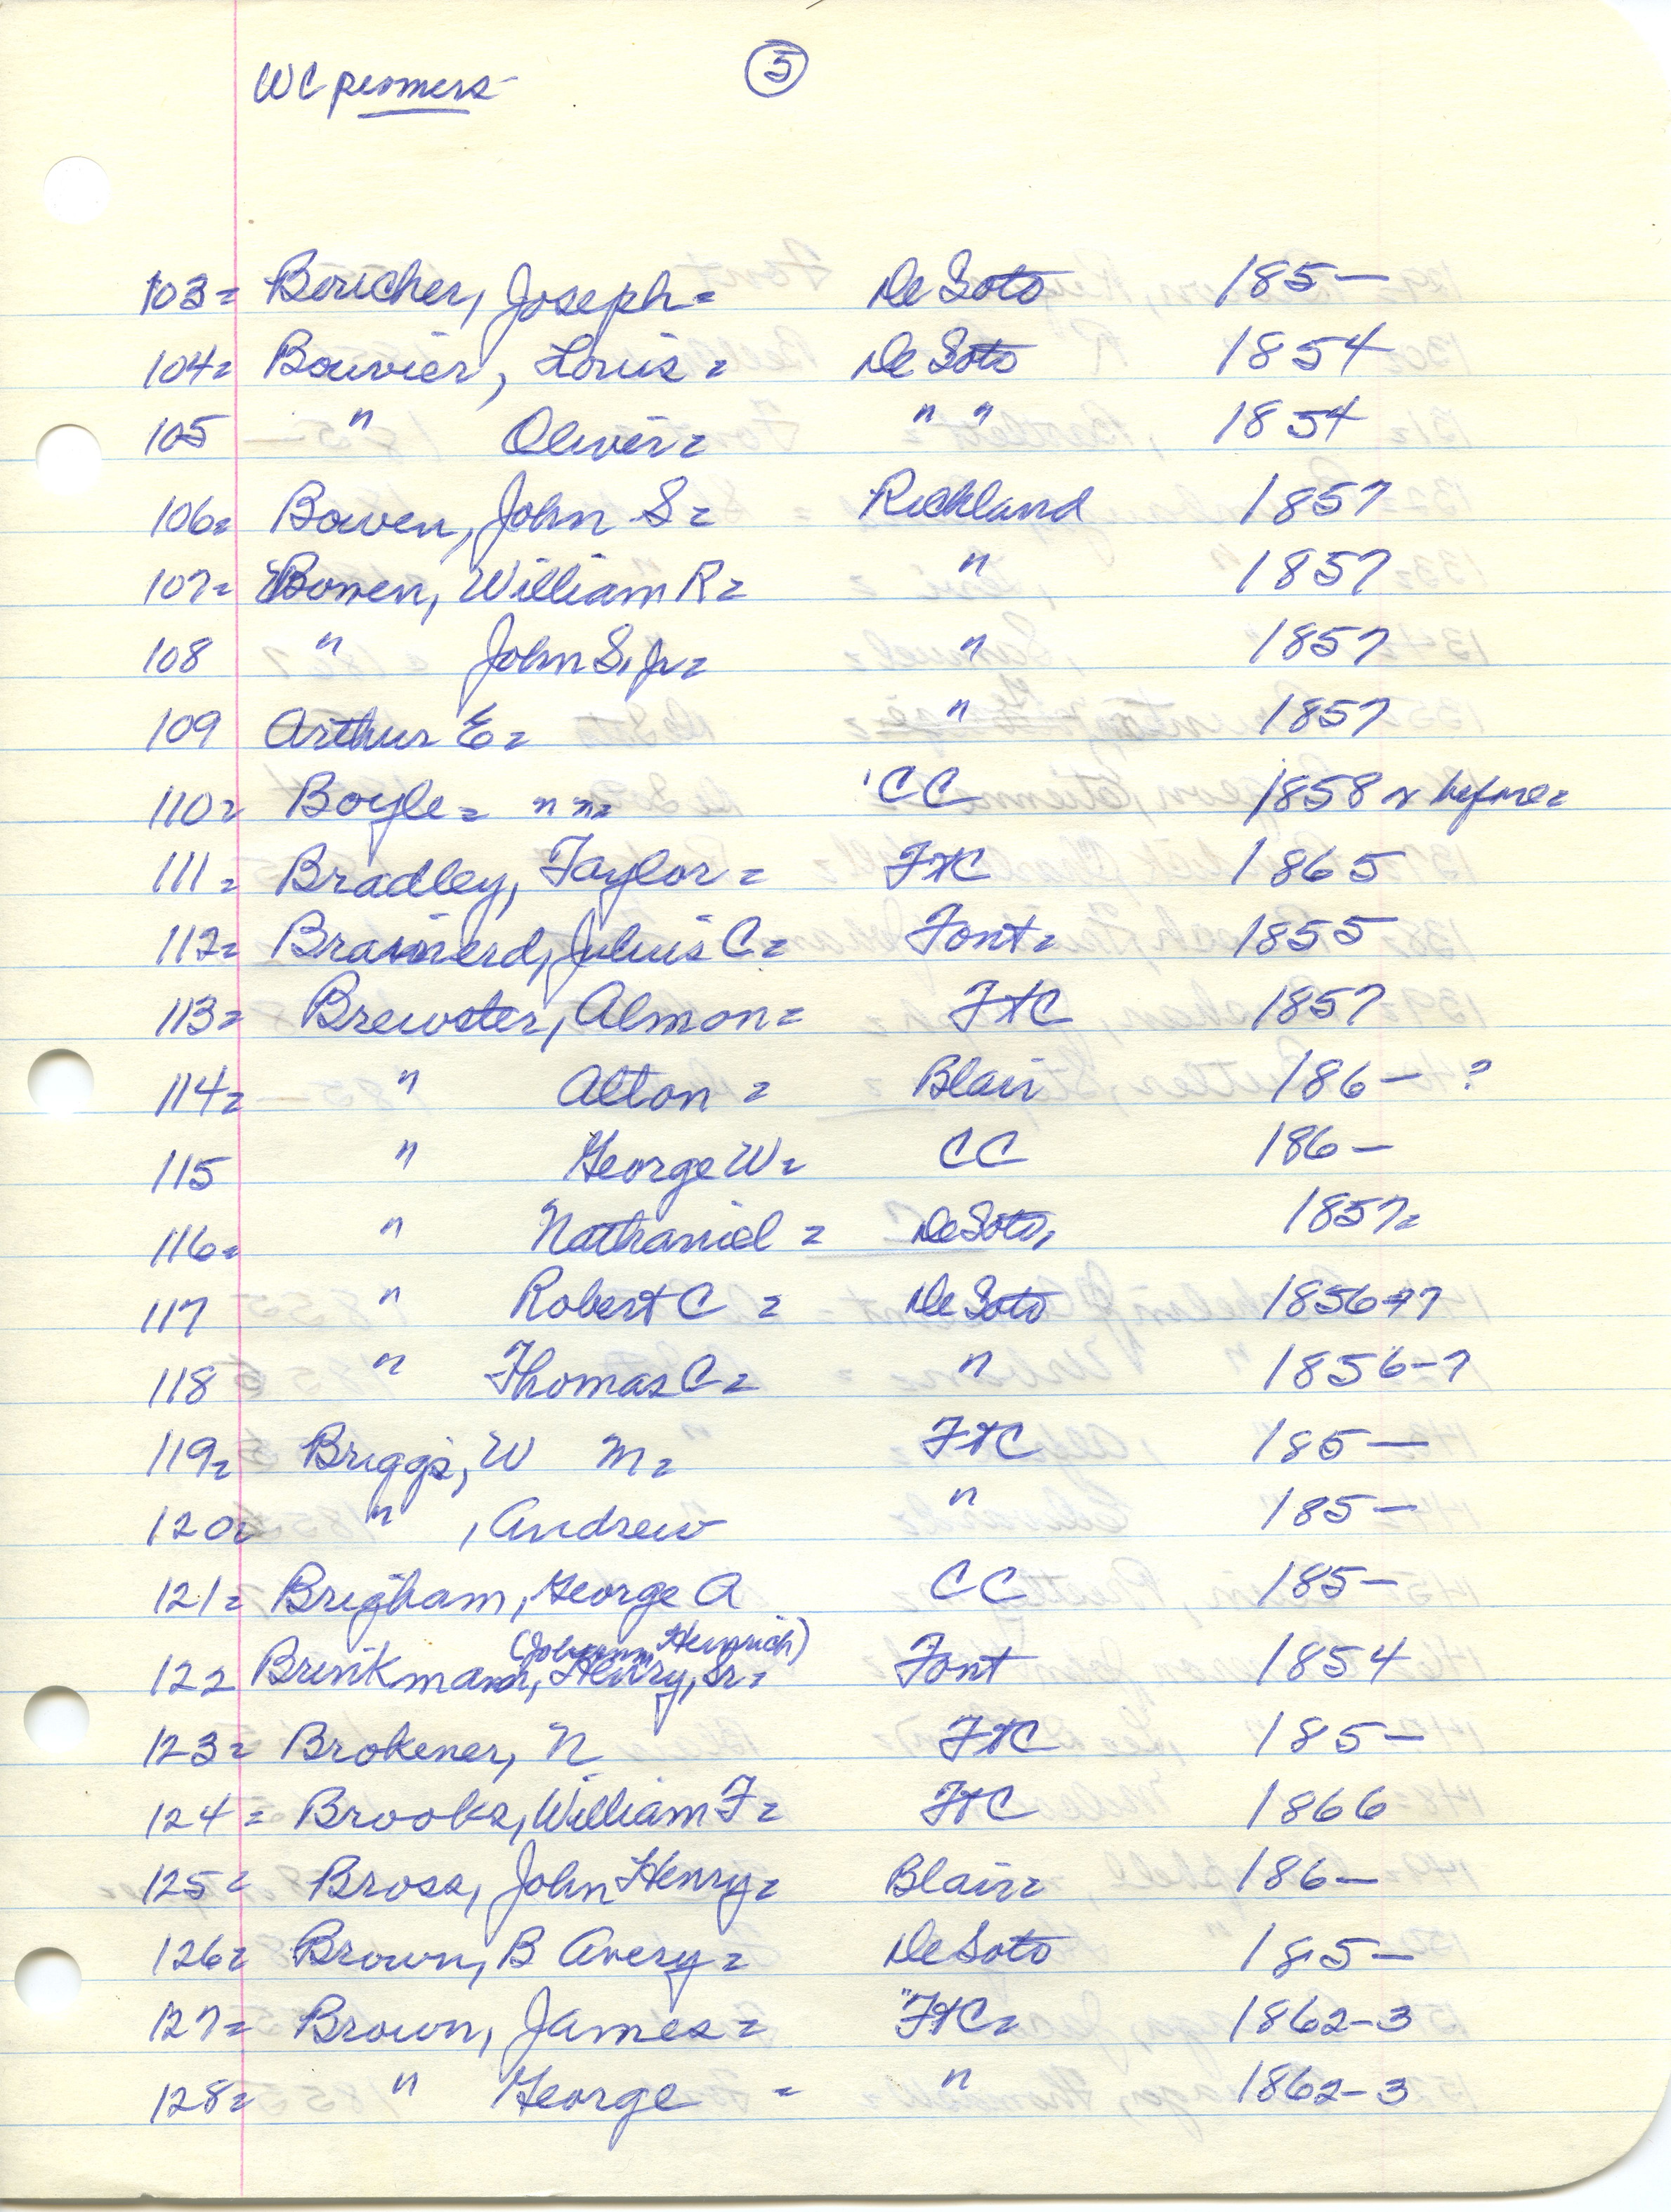 WC pioneers
5
103= Boucher, Joseph= De Soto 185—
104= Bouvier, Louis= De Soto 1854
105 " Oliver= " " 1854
106= Bowen, John S= Richland 1857
107= Bowen, William R= " 1857
108 " John S, Jr= " 1857
109 Arthur E= " 1857
110= Boyle= " "= CC 1858 or before=
111= Bradley, Taylor= FtC 1865
112= Brainerd, Julius C= Font= 1855
113= Brewster, Almon= FtC 1857
114= " Alton= Blair 186— ?
115 " George W= CC 186—
116= " Nathaniel= DeSoto, 1857=
117 " Robert C= De Soto 1856-7
118 " Thomas C= " 1856-7
119= Briggs, W M= FtC 185—
120= " , Andrew " 185—
121= Brigham, George A CC 185—
(Johann Heinrich)
122 Brinkmann, Henry, Sr= Font 1854
123= Brokener, N FtC 185—
124= Brooks, William F= FtC 1866
125= Bross, John Henry= Blair= 186—
126= Brown, B Avery= De Soto 185—
127= Brown, James= FtC= 1862-3
128= " George = " 1862-3